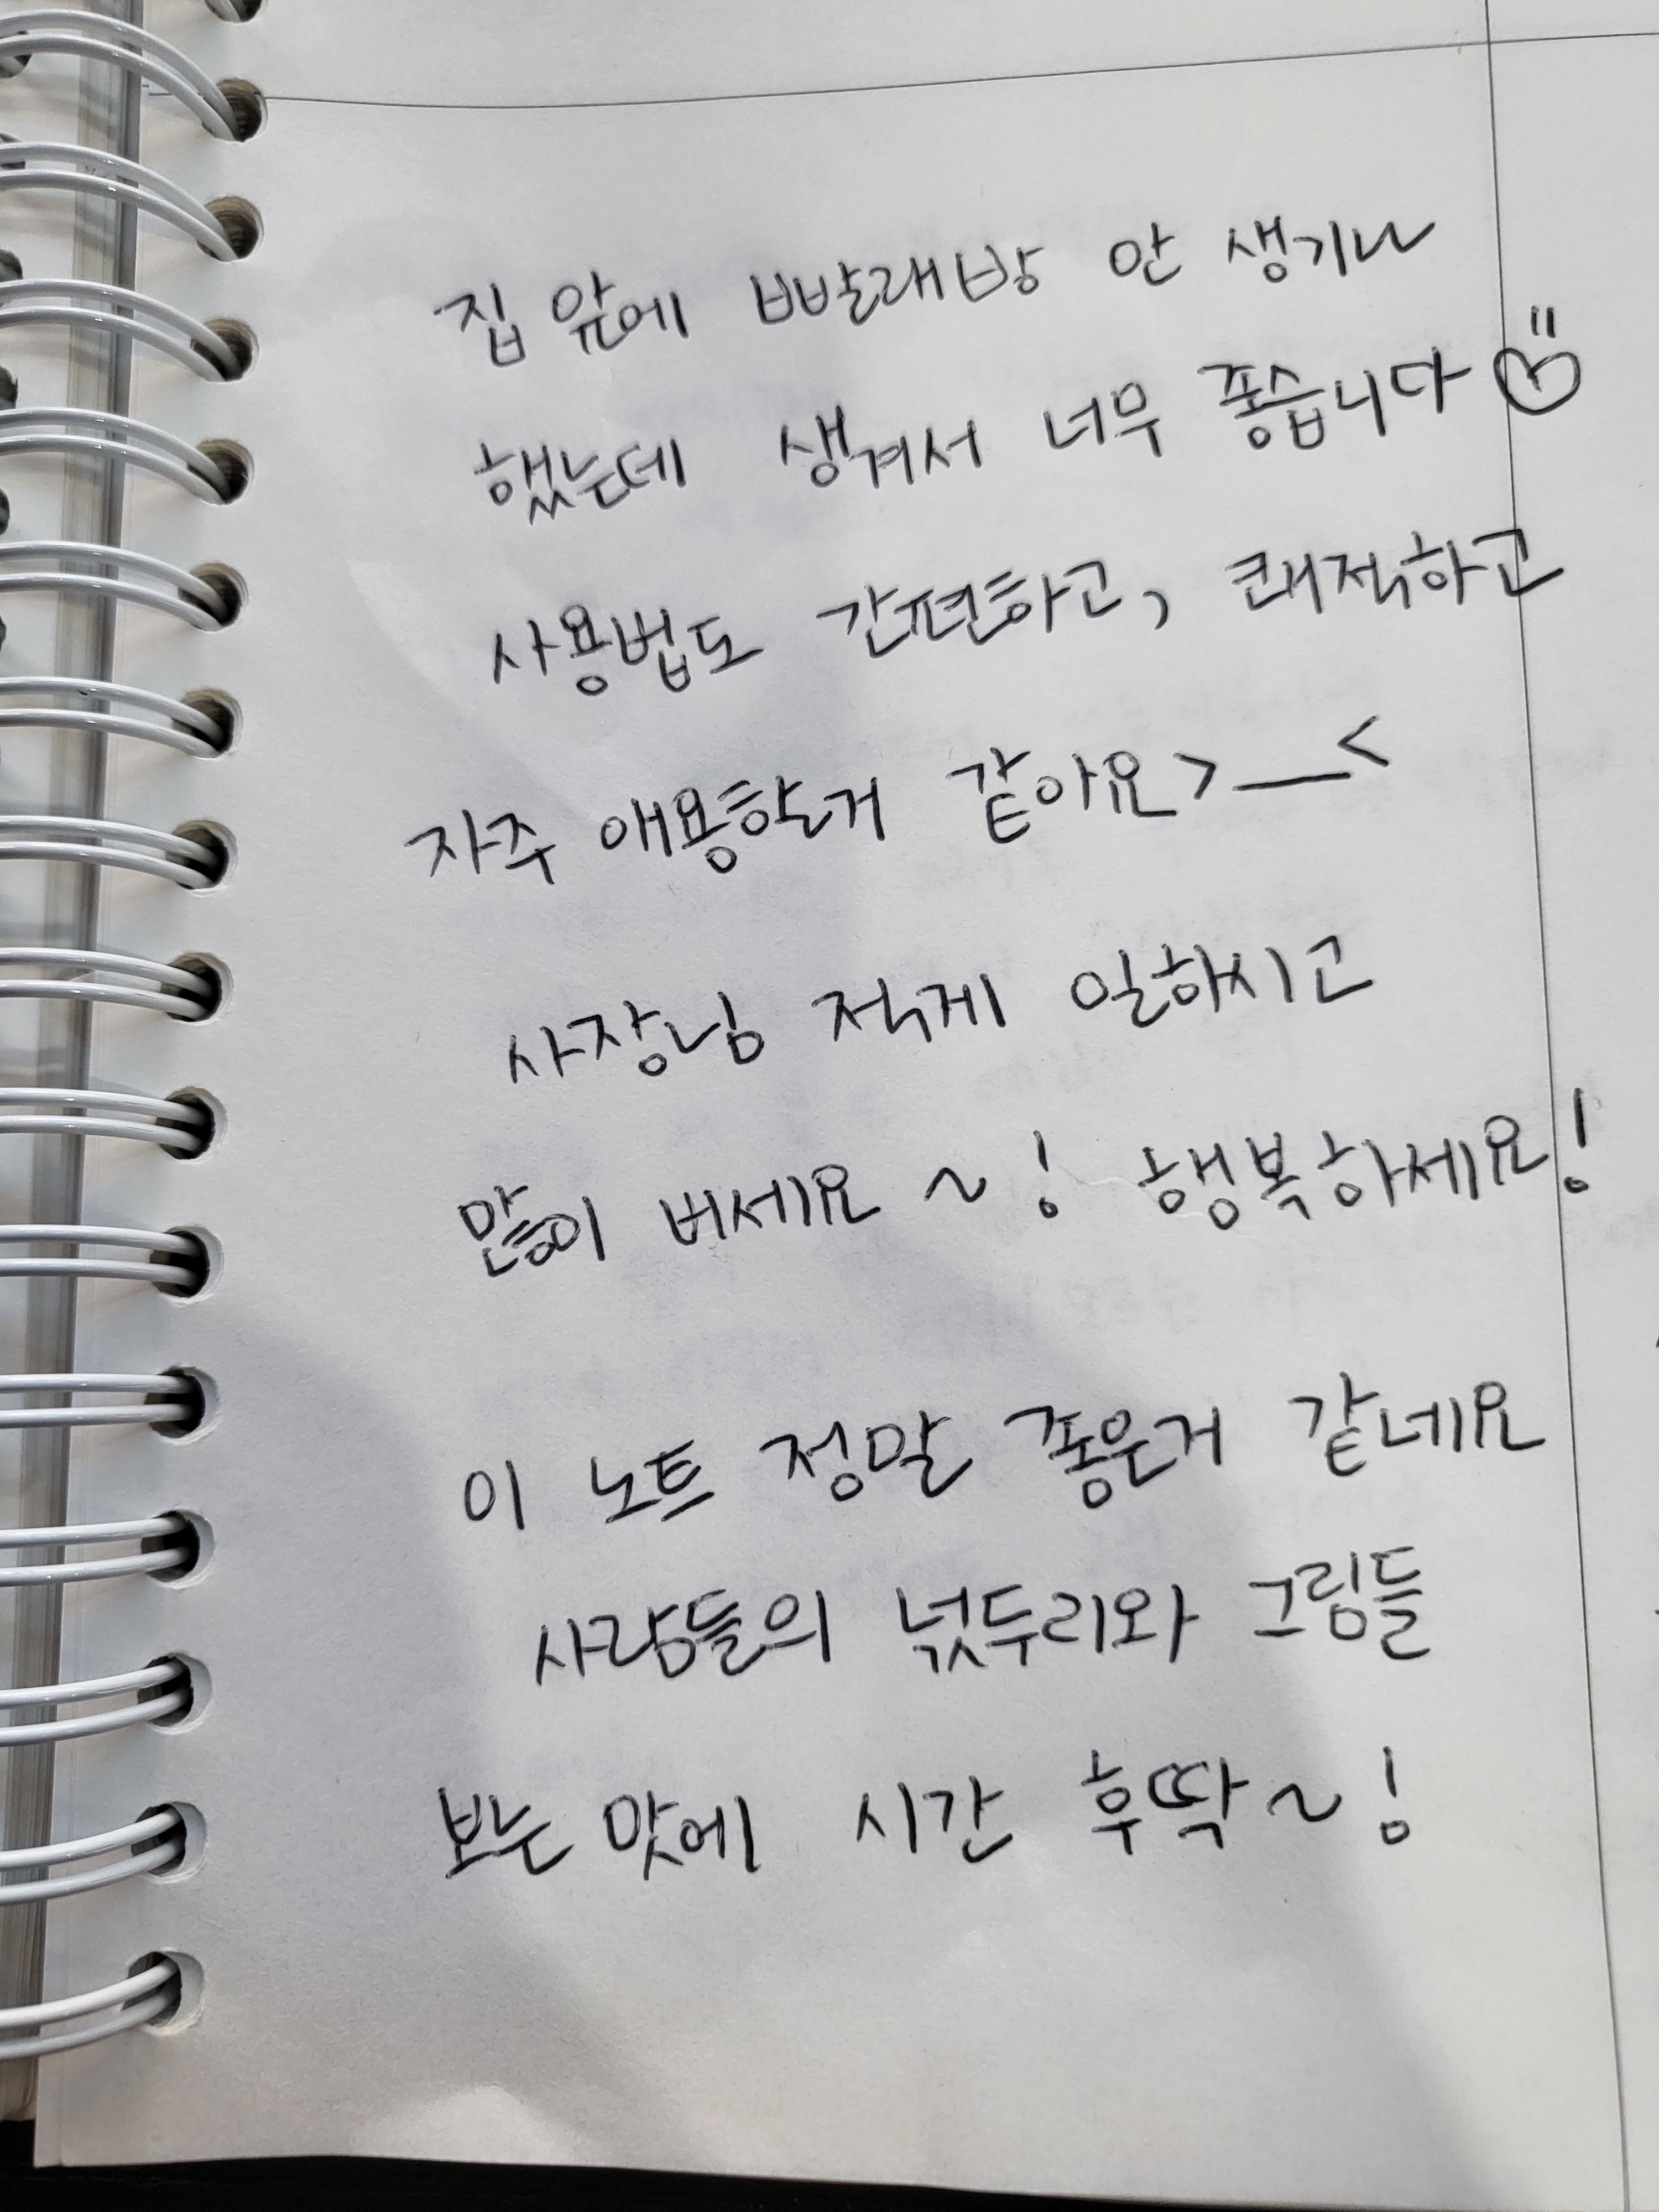 집 앞에 빨래방 안 생기나
했는데 생겨서 너무 좋습니다
사용법도 간편하고, 쾌적하고
자주 애용할거 같아요>__<
사장님 적게 일하시고
많이 버세요~! 행복하세요!
이 노트 정말 좋은거 같네요
사람들의 넋두리와 그림들
보는 맛에 시간 후딱~!